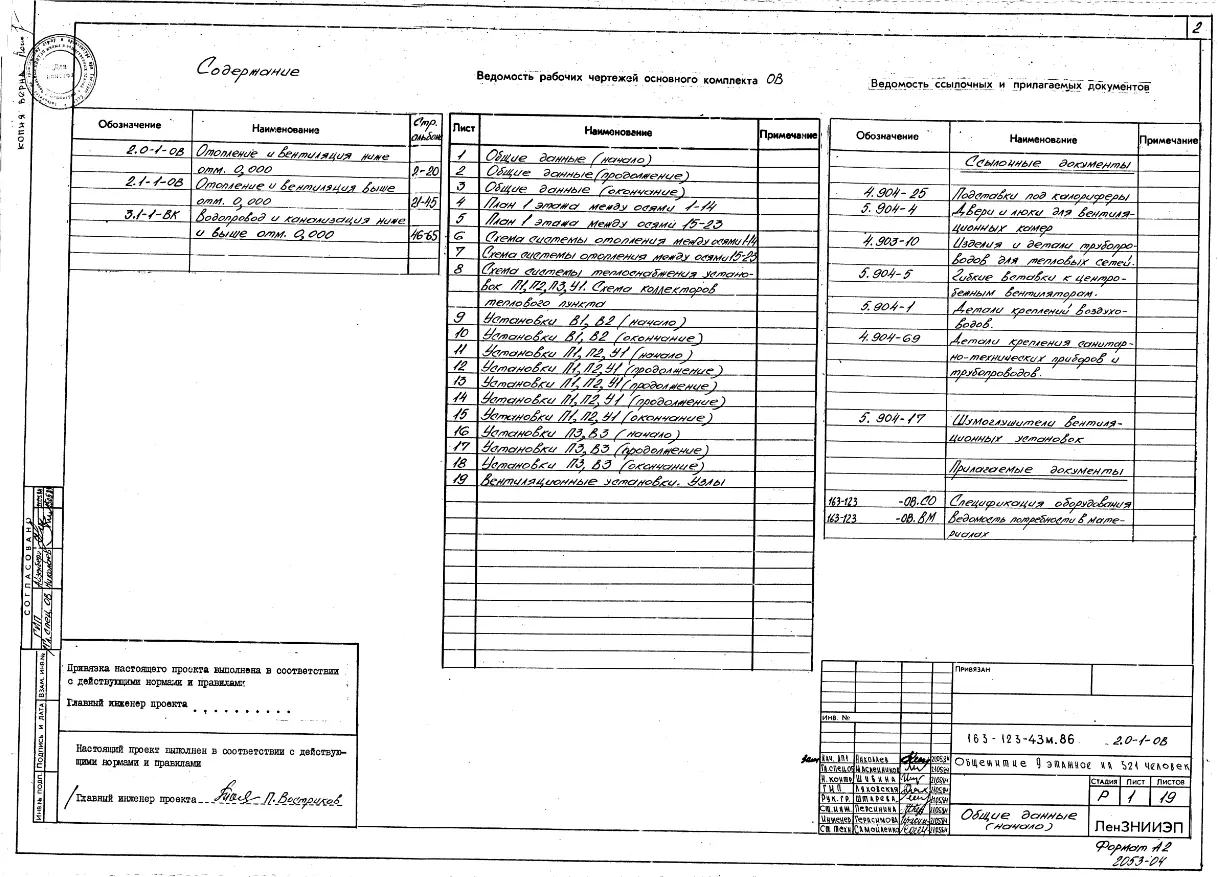 2
КОПИЯ ВЕРНА
Содержание
Обозначение Наименование Стр. альбома
2.0-1-ОВ Отопление и вентиляция ниже
отм. 0,000 2-20
2.1-1-ОВ Отопление и вентиляция выше
отм. 0,000 21-45
3.1-1-ВК Водопровод и канализация ниже
и выше отм. 0,000 46-65
Ведомость рабочих чертежей основного комплекта ОВ
Лист Наименование Примечание
1 Общие данные (начало)
2 Общие данные (продолжение)
3 Общие данные (окончание)
4 План 1 этажа между осями 1-14
5 План 1 этажа между осями 15-23
6 Схема системы отопления между осями 1-14
7 Схема системы отопления между осями 15-23
8 Схема системы теплоснабжения устано-
вок П1, П2, П3, У1. Схема коллекторов
теплового пункта
9 Установки В1, В2 (начало)
10 Установки В1, В2 (окончание)
11 Установки П1, П2, У1 (начало)
12 Установки П1, П2, У1 (продолжение)
13 Установки П1, П2, У1 (продолжение)
14 Установки П1, П2, У1 (продолжение)
15 Установки П1, П2, У1 (окончание)
16 Установки П3, В3 (начало)
17 Установки П3, В3 (продолжение)
18 Установки П3, В3 (окончание)
19 Вентиляционные установки. Узлы
Ведомость ссылочных и прилагаемых документов
Обозначение Наименование Примечание
Ссылочные документы
4.904-25 Подставки под калориферы
5.904-4 Двери и люки для вентиля-
ционных камер
4.903-10 Изделия и детали трубопро-
водов для тепловых сетей.
5.904-5 Гибкие вставки к центро-
бежным вентиляторам.
5.904-1 Детали креплений воздухо-
водов.
4.904-69 Детали крепления санитар-
но-технических приборов и
трубопроводов.
5.904-17 Шумоглушители вентиля-
ционных установок
Прилагаемые документы
163-123 -ОВ.СО Спецификация оборудования
163-123 -ОВ.ВМ Ведомость потребности в мате-
риалах
СОГЛАСОВАНО
ГИП
Гл. спец. ОВ
ИНВ№ ПОДЛ. ПОДПИСЬ И ДАТА ВЗАМ. ИНВ.№
Привязка настоящего проекта выполнена в соответствии
с действующими нормами и правилами
Главный инженер проекта
Настоящий проект выполнен в соответствии с действую-
щими нормами и правилами
Главный инженер проекта П. Востриков
ПРИВЯЗАН
ИНВ. №
163-123-43м.86 2.0-1-ОВ
Общежитие 9 этажное на 321 человек
НАЧ. АПМ Николаев
Гл.спец.ОВ Масленников
Н.контр Шибина
ГИП Ляховская
Рук. гр. Штарева
Ст. инж. Персинина
Инженер Герасимова
Ст. техн. Самойленко
СТАДИЯ Лист Листов
Р 1 19
Общие данные
(начало)
ЛенЗНИИЭП
Формат А2
2053-04